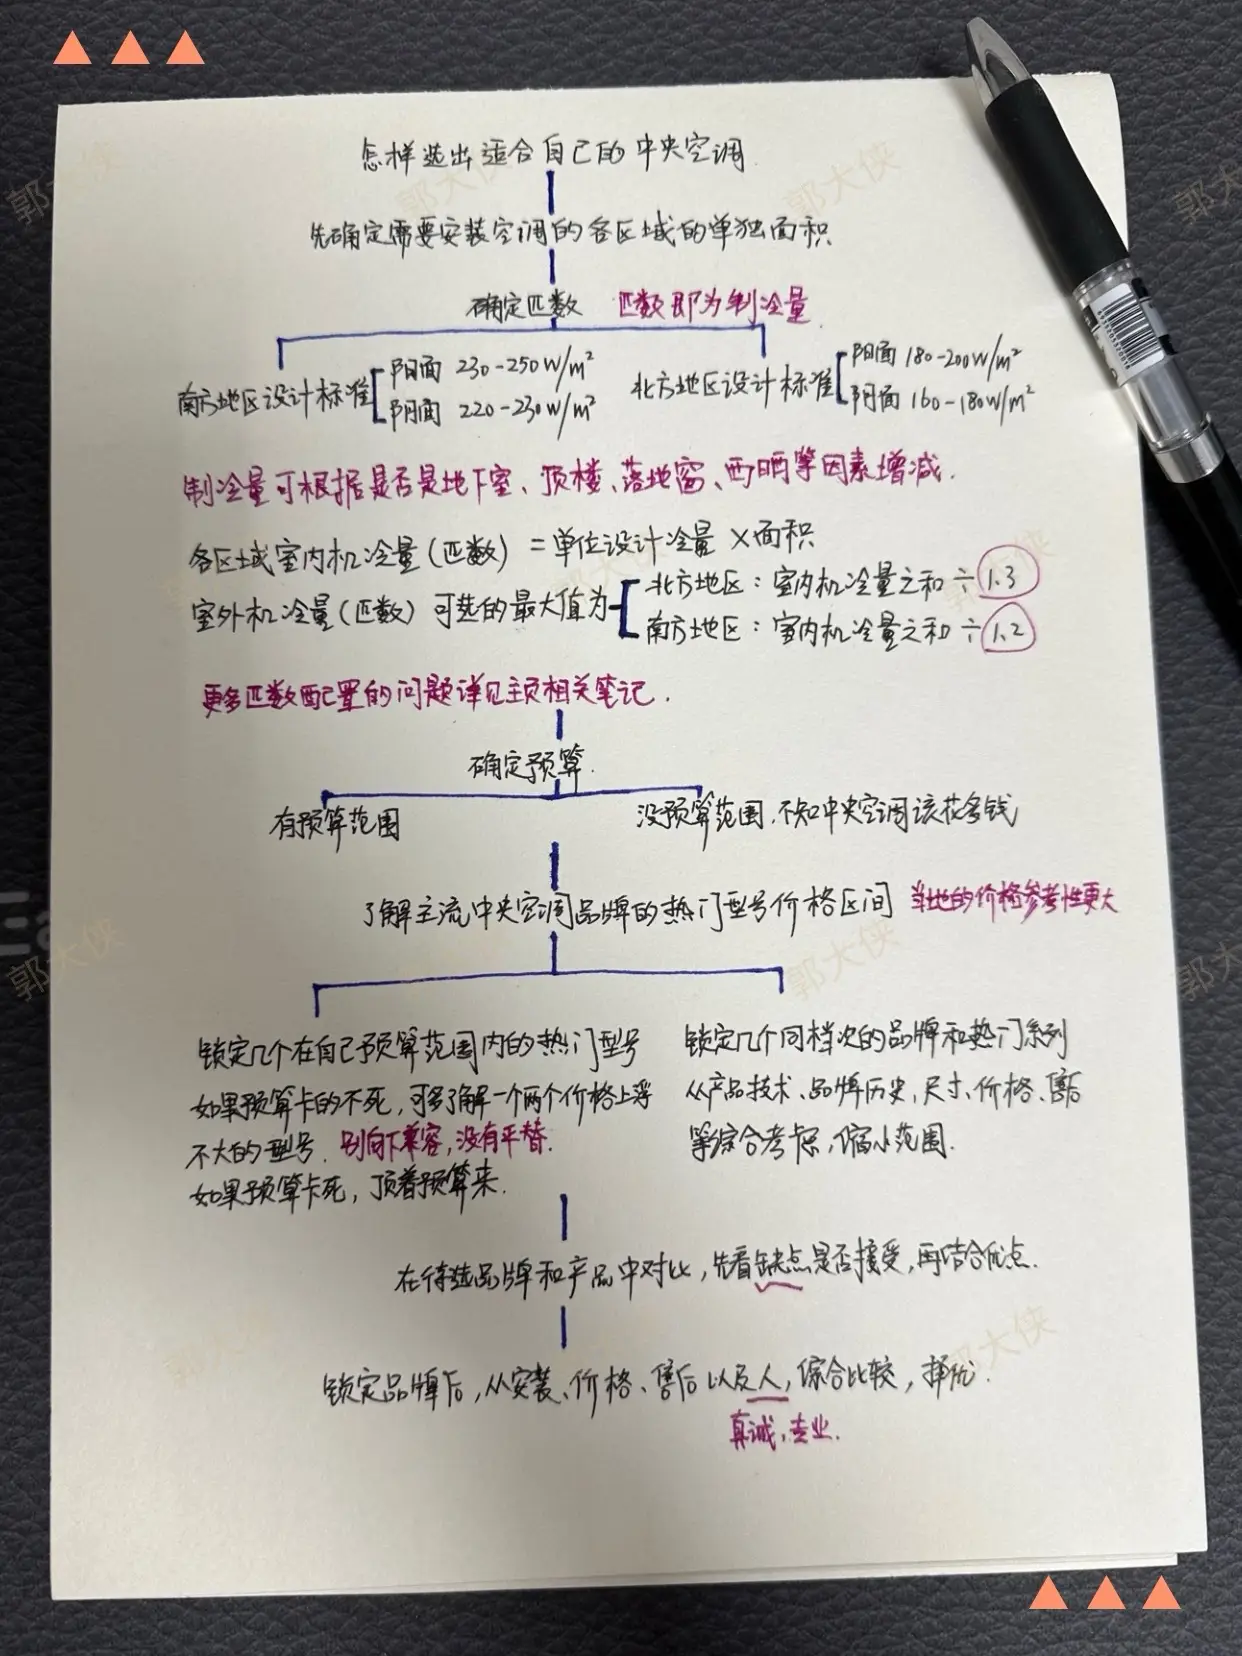 怎样选出适合自己的中央空调
先确定需要安装空调的各区域的单独面积
确定匹数 匹数即为制冷量
南方地区设计标准 阳面 230-250W/m²
阴面 220-230W/m²
北方地区设计标准 阳面 180-200W/m²
阴面 160-180W/m²
制冷量可根据是否是地下室、顶楼、落地窗、西晒等因素增减.
各区域室内机冷量(匹数) = 单位设计冷量 ×面积
室外机冷量(匹数) 可选的最大值为 北方地区: 室内机冷量之和 ÷ 1.3
南方地区: 室内机冷量之和 ÷ 1.2
更多匹数配置的问题详见主页相关笔记.
确定预算.
有预算范围
没预算范围.不知中央空调该花多钱
了解主流中央空调品牌的热门型号价格区间 当地的价格参考性更大
锁定几个在自己预算范围内的热门型号
如果预算卡的不死,可多了解一个两个价格上浮
不大的型号. 别向下兼容,没有平替.
如果预算卡死, 顶着预算来.
锁定几个同档次的品牌和热门系列
从产品技术、品牌历史,尺寸、价格、售后
等综合考虑,缩小范围.
在待选品牌和产品中对比,先看缺点是否接受,再结合优点.
锁定品牌后,从安装、价格、售后以及人,综合比较,择优.
真诚,专业.
郭大侠
郭大侠
郭大侠
郭大侠
郭大侠
郭大侠
郭大侠